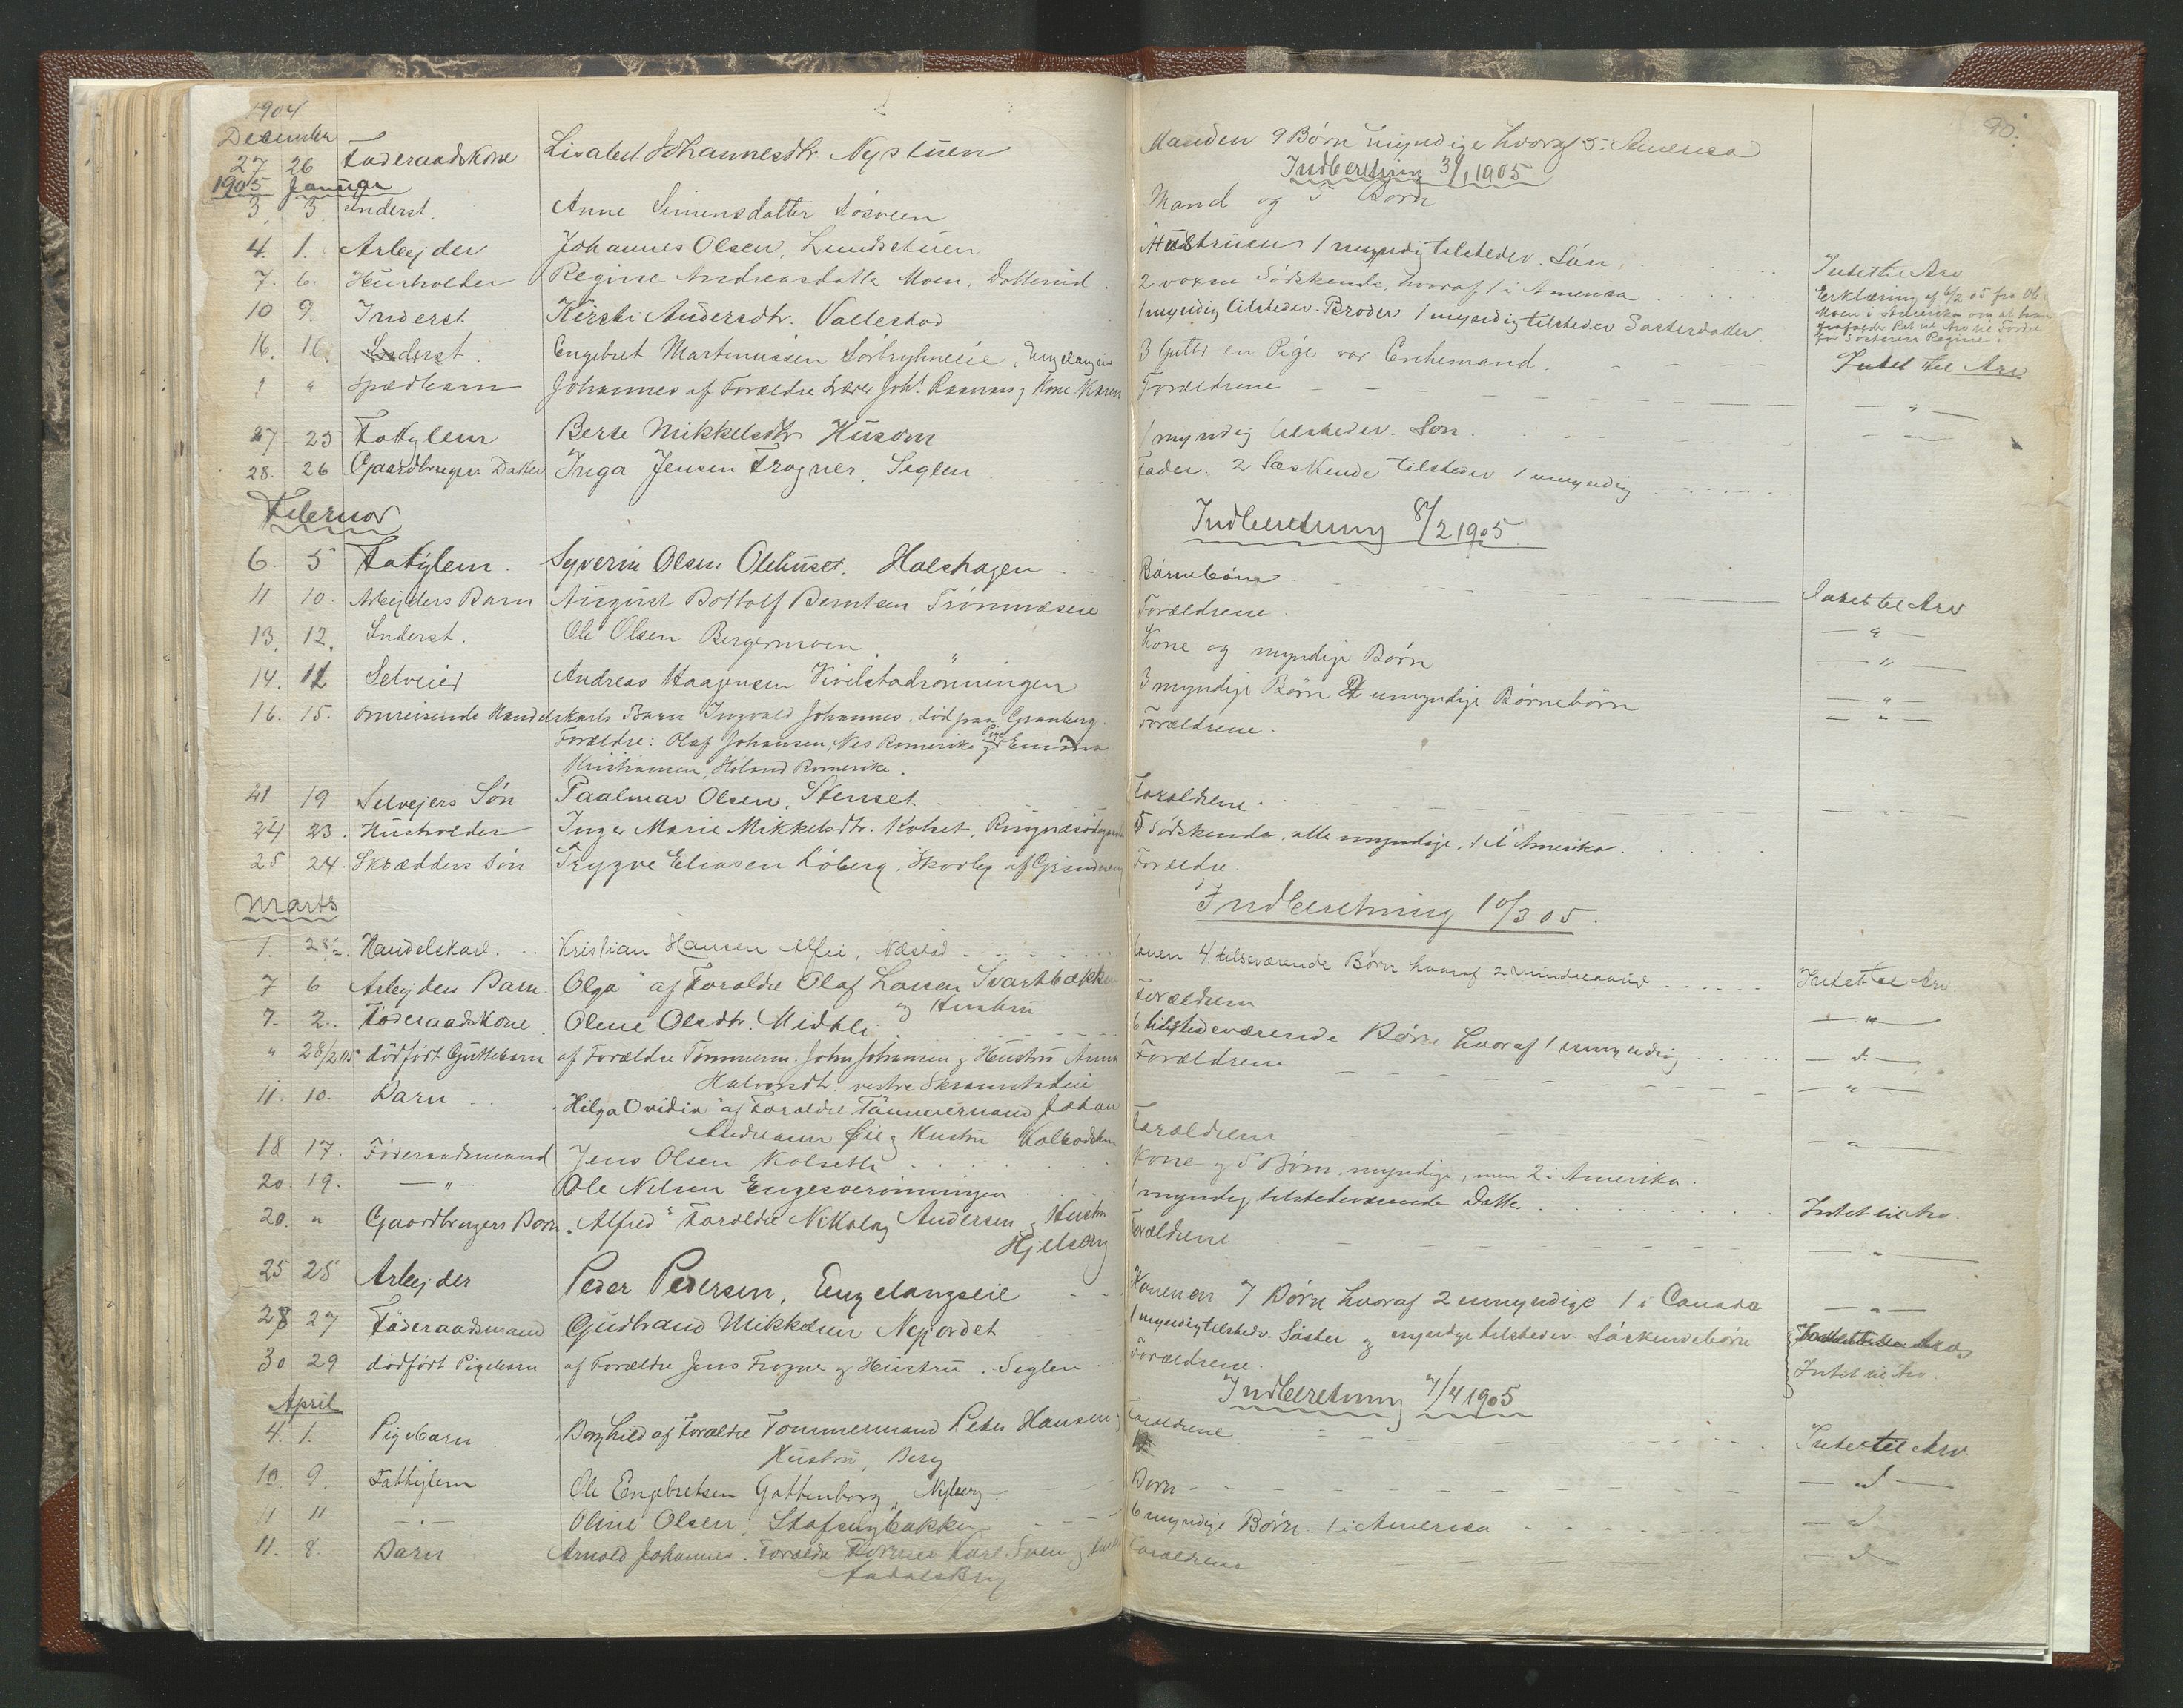 90.
1904
December
27 26 Føderaadskone Lisabet Johannesdtr Nystuen Manden 9 Børn myndige hvoraf 5 i Amerika
Indberetning 3/1 1905
1905 Januar
3 3 Inderst. Anne Simensdatter Mand og 5 Børn
4. 1. Arbejder Johannes Olsen, Lundstuen Hustruen 1 myndig tilstedev. Søn Intet til Arv
7. 6. Husholder Regine Andreasdatter Moen, Dotterud 2 voxne Sødskende, hvoraf 1 i Amerika Erklæring af 6/2 05 fra Ole
Moen i Amerika om at han
frafalder Ret til Arv til Fordel
for Søsteren Regine.
10 9. Inderst Kirsti Andersdtr. Vallestad 1 myndig tilstedev. Broder 1 myndig tilstedev Søsterdatter
16. 16. Inderst. Engebret Martinussen Sørbryhneeie, 3 Gutter en Pige var Enkemand. Intet til Arv
" Spædbarn Johannes af Forældre Joh. og Kone Karen Forældrene — " —
27 25 Fattiglem Berte Mikkelsdtr Husom 1 myndig tilstedev. Søn. — " —
28. 26 Gaardbruger Datter Inga Jensen Frogner, Seglen Fader. 2 Søskende tilstedev 1 umyndig
Februar
Indberetning 8/2 1905
6. 5 Fattiglem. Syverin Olsen Olehuset. Halshagen Børnebørn Intet til Arv
11 10. Arbejders Barn August Bottolf Berntsen Forældrene. — " —
13. 12. Inderst. Ole Olsen Bergermoen Kone og myndige Børn — " —
14. 12 Selveier Andreas Haagensen Vivelstadrønningen 3 myndige Børn 2 umyndige Børnebørn — " —
16. 15. Omreisende Handelskarls Barn Ingvald Johannes, død paa Granberg. Forældrene. — " —
Forældre: Olaf Johansen, Nes Romerike og Pige Emma
Kristiansen, Høland Romerike.
21 19 Selvejers Søn Paalmar Olsen, Stenset. Forældrene. — — —
24 23. Husholder Inger Marie Mikkelsdtr. Kolset, Sødskende, alle myndige, 1 i Amerika.
25 24. Skrædders Søn Trygve Eliasen Løberg, Forældre.
Marts
Indberetning 10/3 05.
1. 28/2. Handelskarl. Kristian Hansen Alfei, Næstad 4 tilsværende Børn hvoraf 2 mindreaarig Intet til Arv.
7 6 Arbejders Barn "Olga" af Forældre Olaf Larsen Svartbækken Forældrene — " —
og Hustru
7. 2. Føderaadskone Olene Olsdtr. Midtli. 6 tilstedeværende Børn hvoraf 1 umyndig — d. —
" 28/2 05 dødfødt Guttebarn af Forældre Tømmerm. John Johansen og Hustru Anna Forældrene — " —
Halvorsdtr. vestre Skramstadeie
11. 10. Barn "Helga Ovidia" af Forældre Tømmermand Johan Forældrene — " —
Andreasen Eie og Hustru
18 17. Føderaadsmand Jens Olsen Kolsetli Kone og 5 Børn, myndige, men 2 i Amerika.
20. 19. — " — Ole Nilsen Engesverønningen 1 myndig tilstedeværende Datter Intet til Arv.
20. " Gaardbrugers Barn "Alfred" Forældre Nikolay Andersen og Hustru Forældrene — " —
Hjelberg
25 25 Arbejder Peder Pedersen, Engelangseie Konen 7 Børn hvoraf 2 umyndige 1 i Canada — " —
28 27 Føderaadsmand Gudbrand Mikkelsen Nyjordet 1 myndig tilstedv. Søster og myndige tilstedev. Søskendebørn
30 29 dødfødt Pigebarn af Forældre Jens Frogner og Hustru, Seglen Forældrene. Intet til Arv.
April
Indberetning 7/4 1905
4. 1. Pigebarn Borghild af Forældre Tømmermand Peter Hansen og Forældrene Intet til Arv.
Hustru, Berg
10 9. Fattiglem Ole Engebretsen Gottenborg, Nyberg Børn — d —
11 11 — " — Oline Olsen, Stafsengbakken 6 myndige Børn. 1 i Amerika — d —
11. 8. Barn Arnold Johannes. Forældre Karl Sven og Forældrene — d —